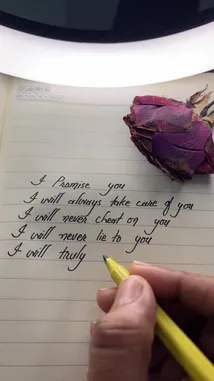 I Promise you
I will always take care of you
I will never cheat on you
I will never lie to you
I will truly